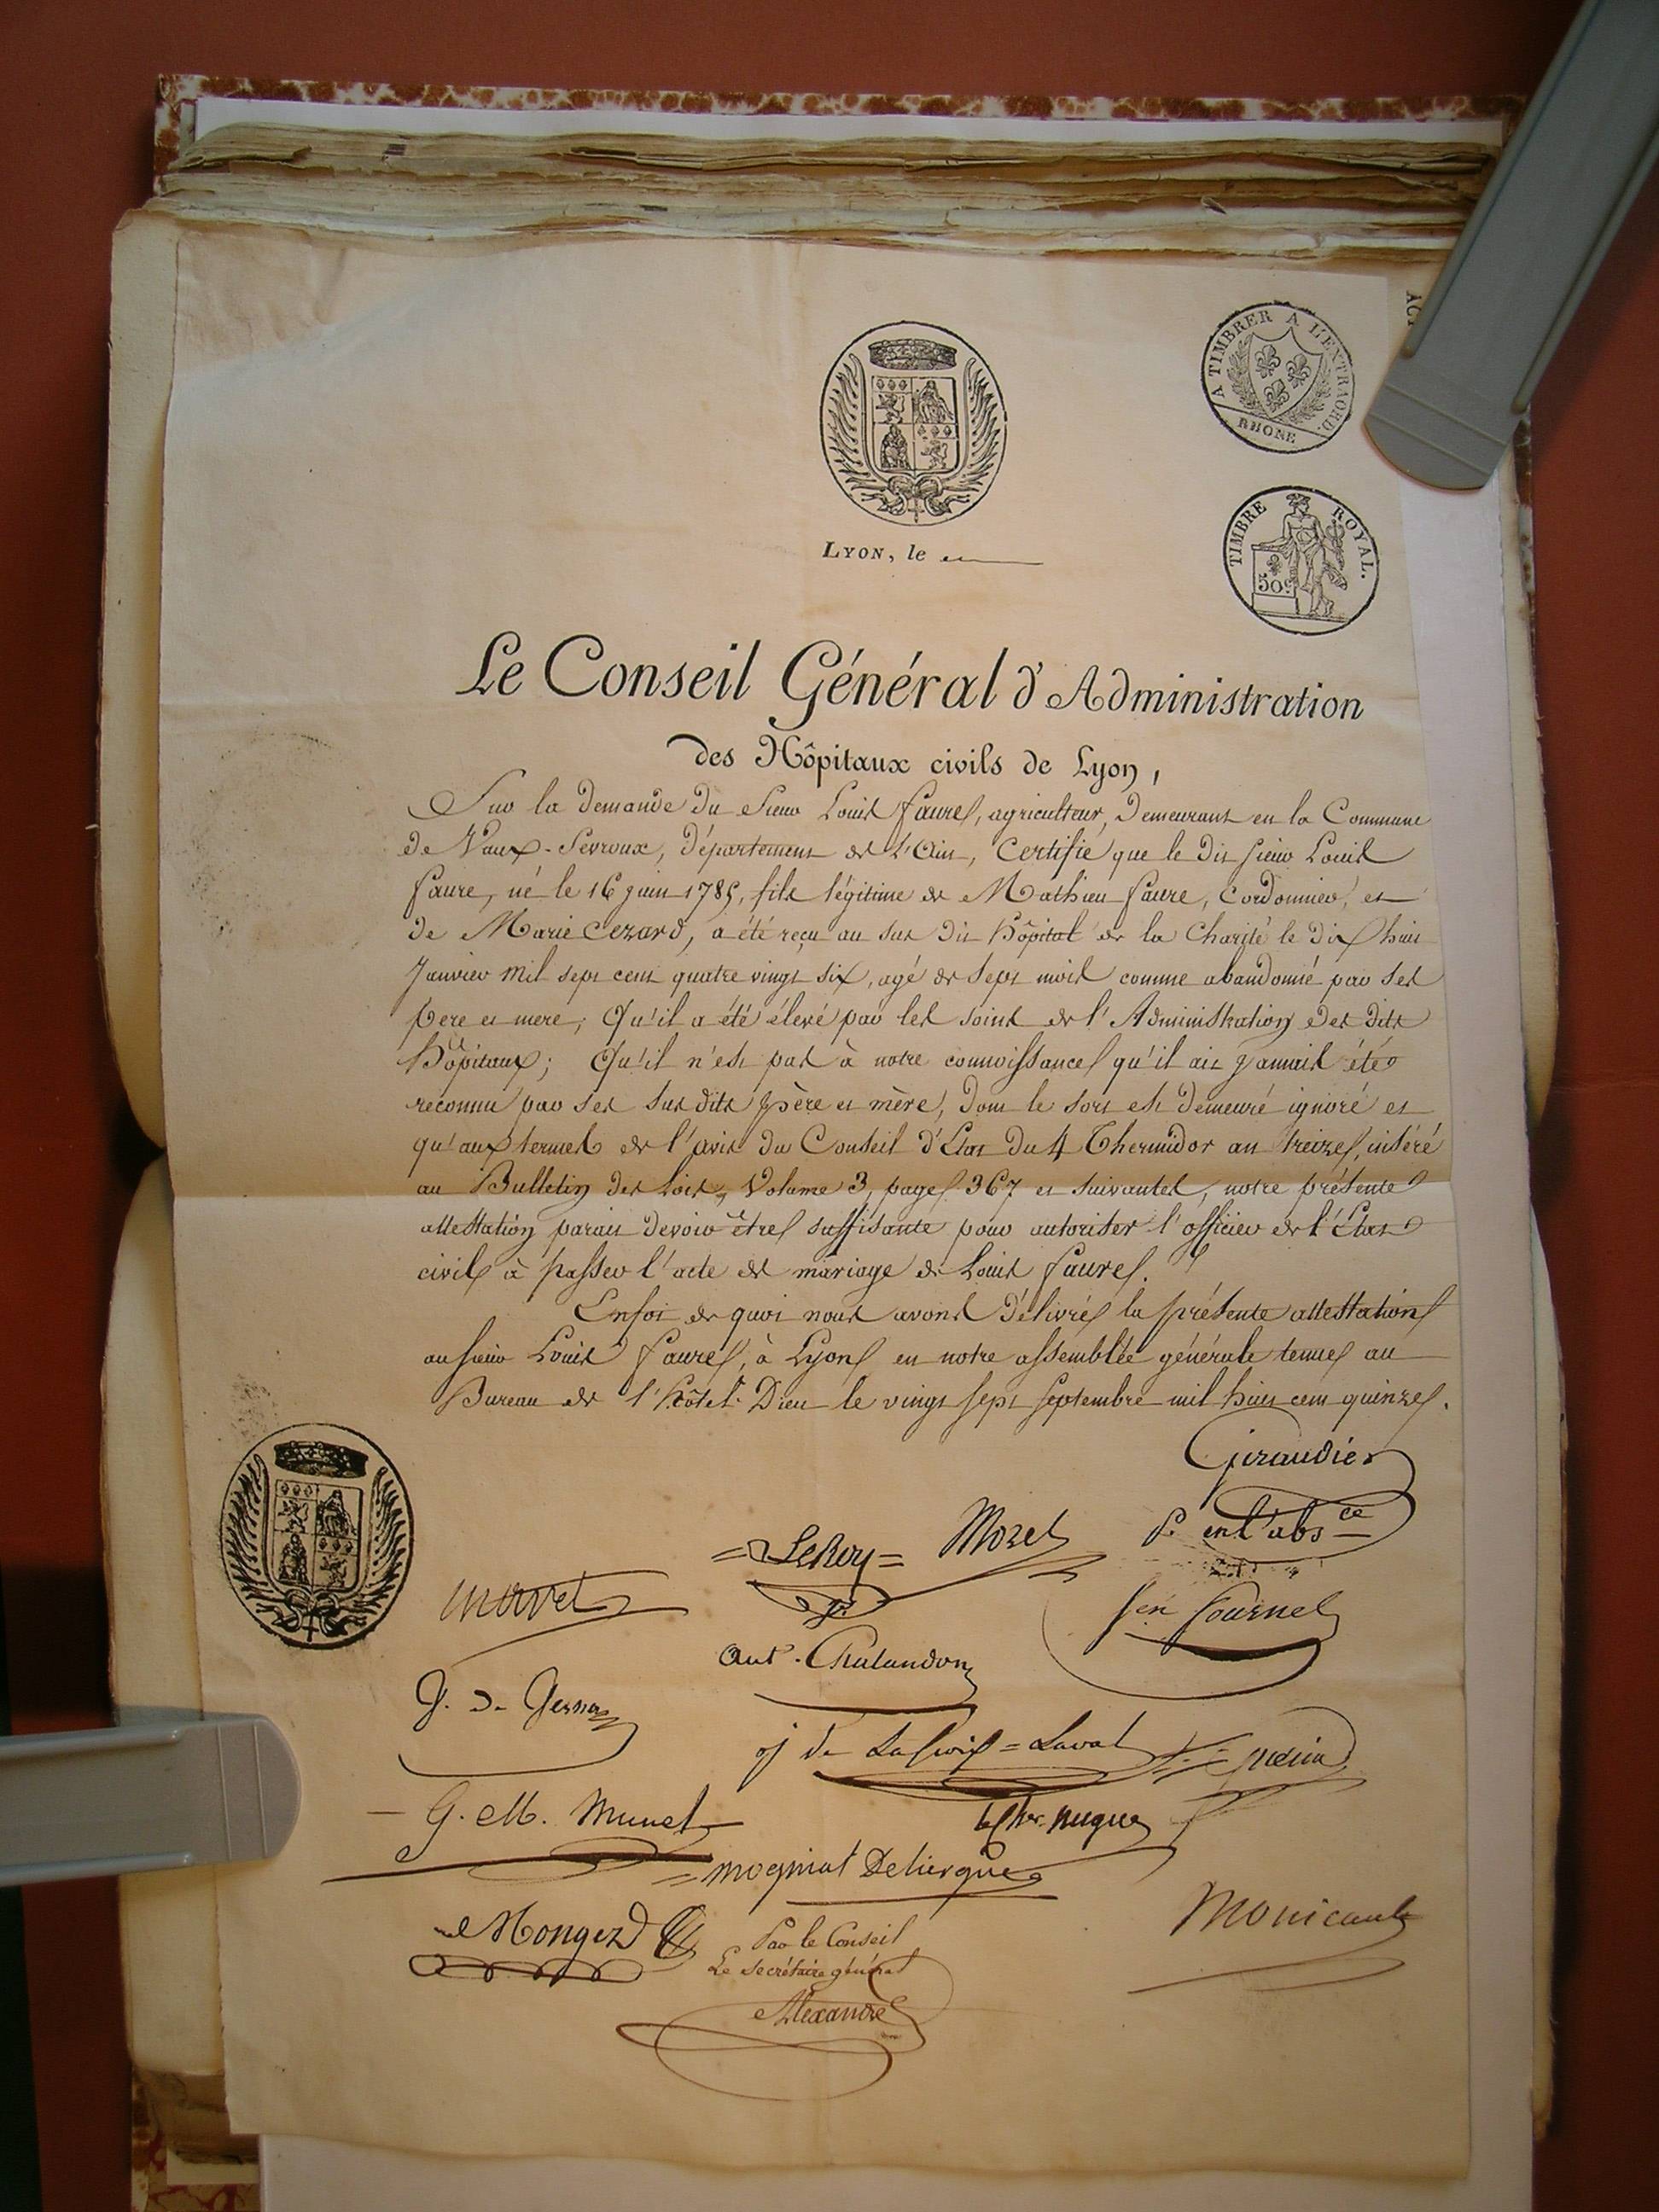 A TIMBRER A L'EXTRAORD.
RHONE
TIMBRE ROYAL.
50c
LYON, le
Le Conseil Général d'Administration
des Hôpitaux civils de Lyon,
Sur la demande du Sieur Louis Faure, agriculteur, Demeurant en la Commune
de Vaux-Sevroux, Département de L'Ain, Certifie que le dit sieur Louis
Faure, né le 16 juin 1785, fils légitime de Mathieu Faure, Cordonnier, et
de Marie Cezard, a été reçu au sus dit hôpital de la Charité le dix huit
Janvier mil sept cent quatre vingt six, agé de sept mois comme abandonné par ses
pere et mere; Qu'il a été élevé par les soins de l'Administration des dits
hôpitaux; Qu'il n'est pas à notre connoissance qu'il ait jamais été
reconnu par ses sus dits père et mère, dont le sort est demeuré ignoré et
qu'aux termes de l'avis du Conseil d'Etat du 4 Thermidor an treize, inséré
au Bulletin des Lois, Volume 3, page 367 et suivantes, notre présente
attestation parait devoir être suffisante pour autoriser l'officier de l'Etat
civil à passer l'acte de mariage de Louis Faure.
Enfoi de quoi nous avons délivré la présente attestation
au sieur Louis Faure, à Lyon en notre assemblée générale tenue au
Bureau de l'hôtel-Dieu le vingt sept septembre mil huit cent quinze.
Giraudier
P. en l'absce
=LeRoy= Morel
fen fournel
Ant. Chalandon
J. De
j de Lacroix=Laval
G. M. Munet
mogniat Deliergues
Mongez
Monicault
Par le Conseil
Le secrétaire général
Alexandre